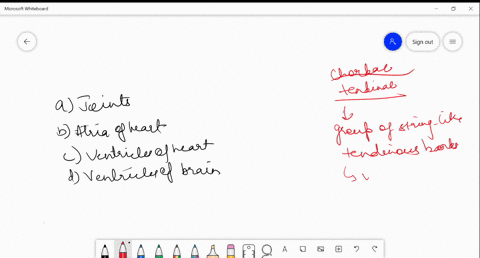 Microsoft Whiteboard
Sign out
a) Joints
b) Atria of heart
c) Ventricles of heart
d) Ventricles of brain
Chordae
tendinae
↓
group of string-like
tendinous
↳